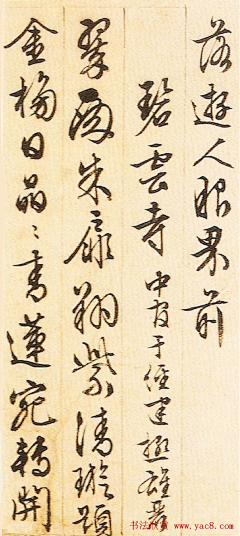 落遊人眼界前
碧雲寺 中官于經建極雄
翠殿朱扉翔紫清璇題
金榜日晶〻青蓮宛轉開
书法欣赏 www.yac8.com